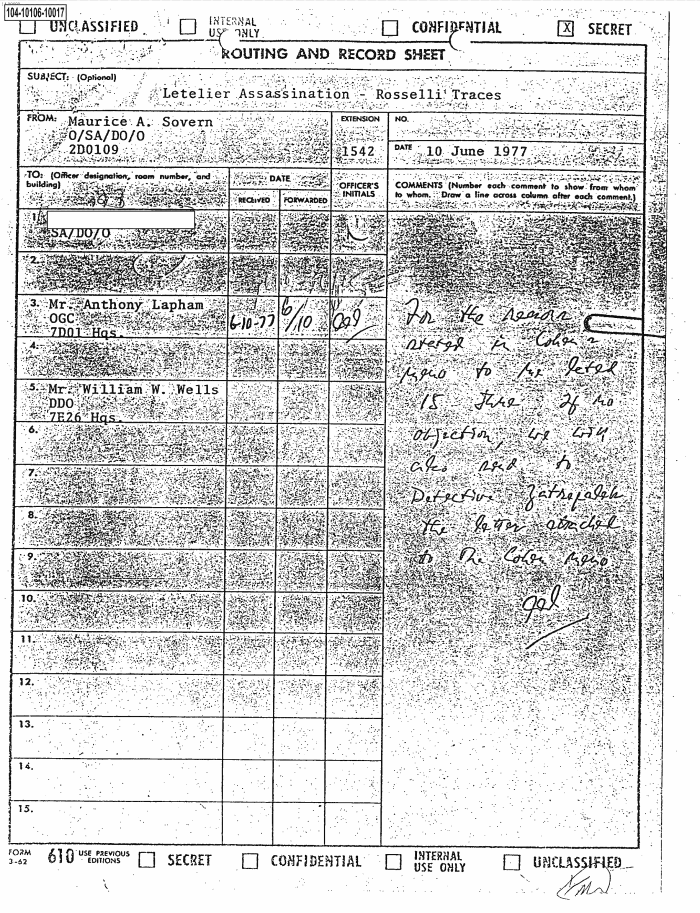 104-10106-10017
UNCLASSIFIED INTERNAL USE ONLY CONFIDENTIAL X SECRET
ROUTING AND RECORD SHEET
SUBJECT: (Optional)
Letelier Assassination - Rosselli Traces
FROM: Maurice A. Sovern
O/SA/DO/O
2D0109
EXTENSION
1542
NO.
DATE 10 June 1977
TO: (Officer designation, room number, and building)
DATE
RECEIVED FORWARDED
OFFICER'S INITIALS
COMMENTS (Number each comment to show from whom
to whom. Draw a line across column after each comment.)
1.
SA/DO/O
2.
3. Mr. Anthony Lapham
OGC
7D01 Hqs.
6-10-77 6/10
4.
5. Mr. William W. Wells
DDO
7E26 Hqs.
6.
7.
8.
9.
10.
11.
12.
13.
14.
15.
For the reasons
stated in Cohen's
memo to me dated
15 June If no
objection, we will
also send to
Detective
the letter attached
to the Cohen memo
FORM 3-62 610 USE PREVIOUS EDITIONS SECRET CONFIDENTIAL INTERNAL USE ONLY UNCLASSIFIED